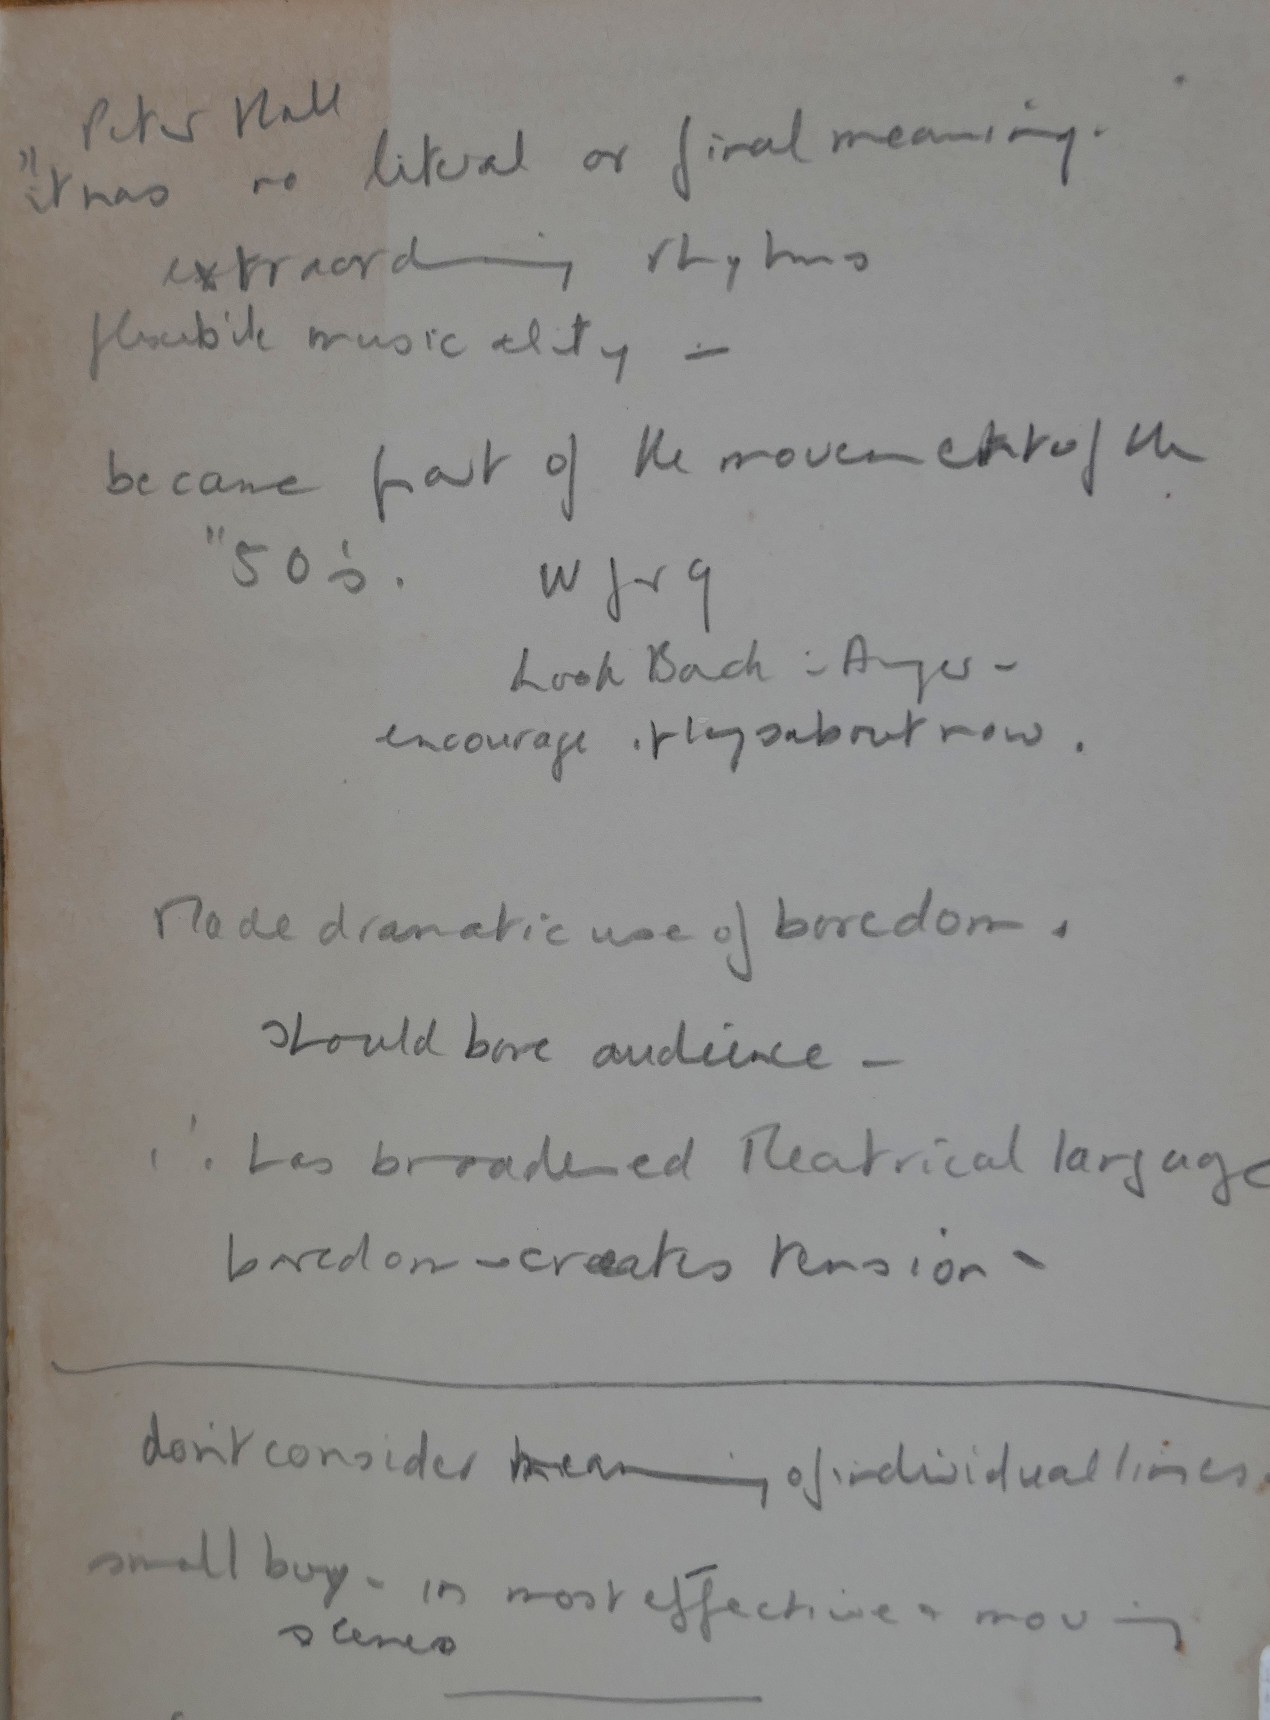 Peter Hall
"it has no literal or final meaning.
extraordinary rhythms
flexibile musicality -
became part of the movement of the
"50's. W f r g
Look Back in Anger -
encourage plays about now.
Made dramatic use of boredom.
should bore audience -
has broadened Theatrical language
boredom - creates tension -
don't consider meaning of individual lines.
small boy - in most effective + moving
scenes